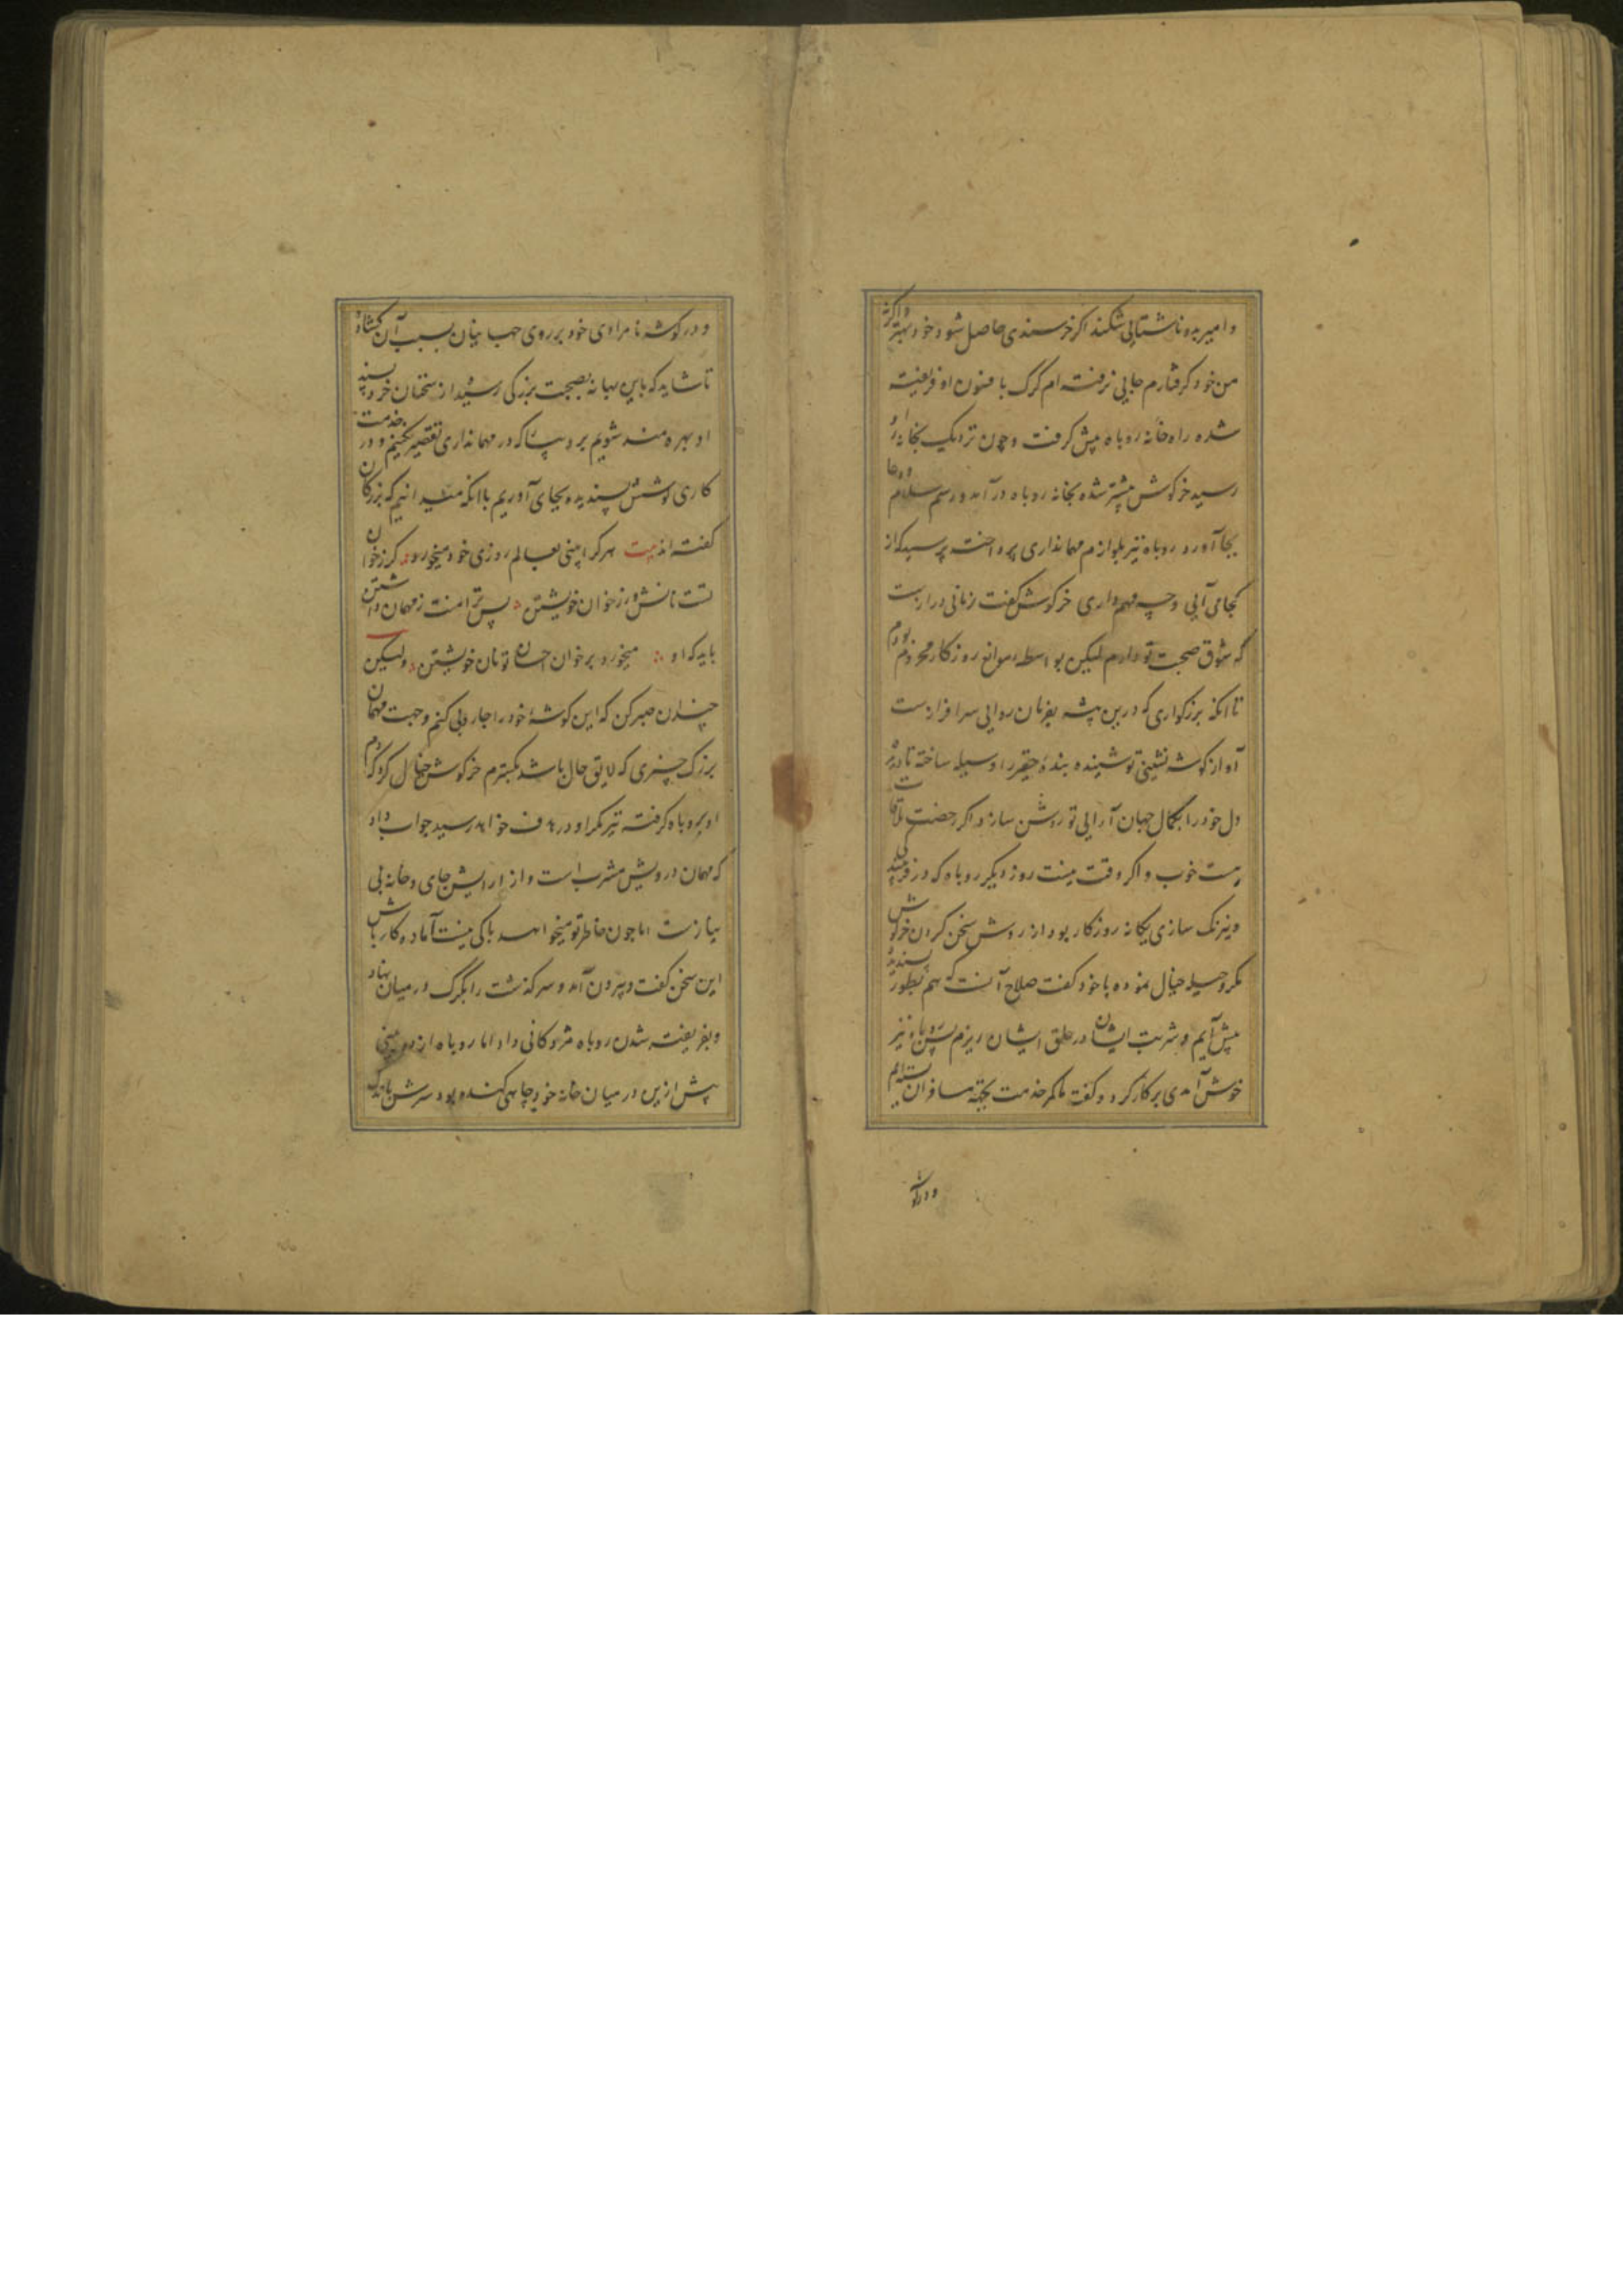 و امیر بدو ناشتایی شکند اکر خرسندی حاصل شود خود بهتر و اکرنه
من خود کرفتارم جایی نرفته ام کرک بافسون او فریفته
شده راه خانه روباه پیش کرفت و چون نزدیک بخانه او
رسید خرکوش پیشتر شده بخانه روباه درآمد و رسم سلام و دعا
بجا آورد روباه نیز بلوازم مهمانداری پرداخته پرسید که از
کجا می آیی و چه مهم داری خرکوش کفت زمانی درازست
که شوق صحبت تو دارم لیکن بواسطه موانع روزکار محروم بودم
تا انکه بزرکواری که درین بیشه بفرمان روایی سرافرازست
آوازه کوشه نشینی تو شنیده بنده حقیر را وسیله ساخته تا دیده
دل خود را بجمال جهان آرایی تو روشن سازد اکر رخصت ملاقات
هست خوب و اکر وقت نیست روز دیکر روباه که در فریبندکی
و نیرنک سازی یکانه روزکار بود از روش سخن کردن خرکوش
مکر و حیله خیال نموده با خود کفت صلاح آنست که هم بطور پسندیده
پیش آیم و شربت ایشان در حلق ایشان ریزم پس روباه نیز
خوش آمدی بر کار کرد و کفت ما کمر خدمت بجهة مسافران بسته ایم
و در کو
و در کوشه نامرادی خود بر روی جهانیان بسبب آن کشاده
تا شاید که باین بهانه بصحبت بزرکی رسیده از سخنان خردپسند
او بهره مند شویم بر و پیداست که در مهمانداری تقصیر نکنیم و در خدمت
کاری کوشش پسندیده بجای آوریم با انکه میدانیم که بزرکان
کفته اند بیت هرکرا بینی بعالم روزی خود میخورد کر ز خوان
تست نانش ور ز خوان خویشتن پس ترا منت ز مهمان داشتن
باید که او میخورد بر خوان احسان تو نان خویشتن ولیکن
چندان صبر کن که این کوشه خود را جاروبی کنم و جهت مهمان
بزرک چیزی که لایق حال باشد بکسترم خرکوش خیال کرد که دم
او بروباه کرفته تیر مکر او در هدف خواهد رسید جواب داد
که مهمان درویش مشرب است و از آرایش جای و خانه بی
نیازست اما چون خاطر تو میخواهد باکی نیست آماده کار باش
این سخن کفت و بیرون آمد و سرکذشت را بکرک در میان نهاد
و بفریفته شدن روباه مژدکانی داد اما روباه از دوربینی
پیش ازین در میان خانه خود چاهی کنده بود سرش باندک